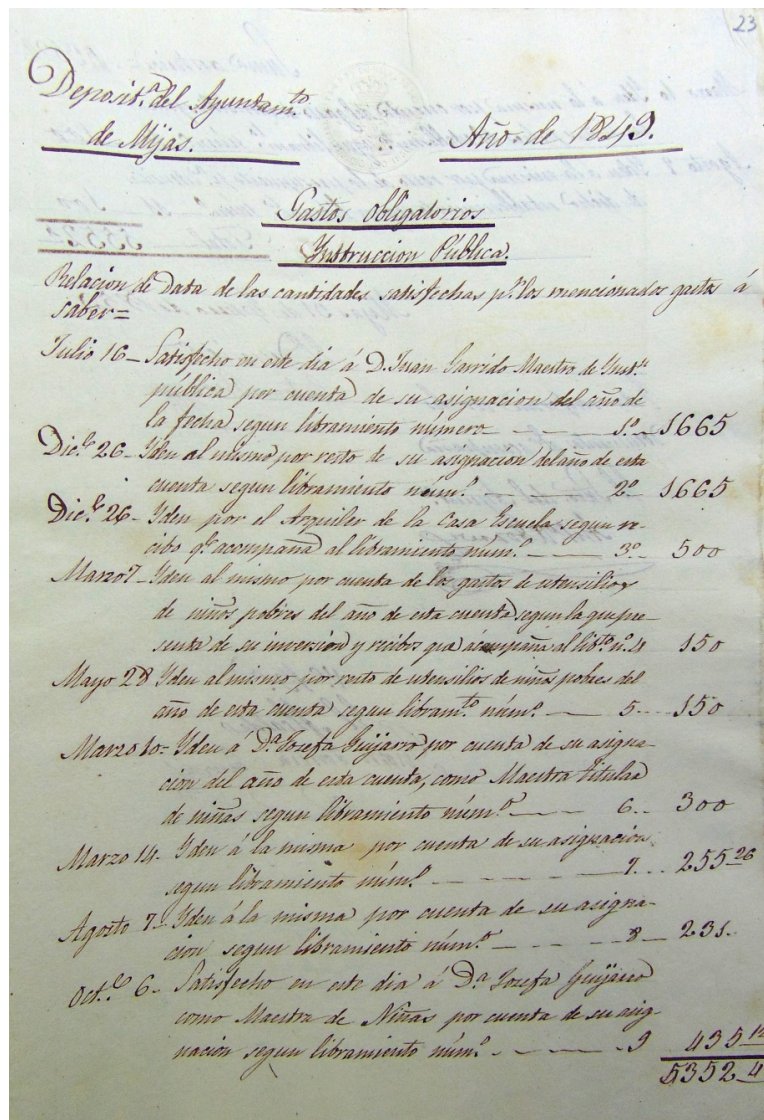 23
Deposit.ª del Ayuntam.to
de Mijas.
Año de 1849.
Gastos obligatorios
Instruccion Pública.
Relacion de Data de las cantidades satisfechas p.r los mencionados gastos á
saber=
Julio 16_ Satisfecho en este dia á D. Juan Garrido Maestro de Inst.n
pública por cuenta de su asignacion del año de
la fecha segun libramiento número 1º 1665
Dic.e 26_ Yden al mismo por resto de su asignacion del año de esta
cuenta segun libramiento núm.º 2º 1665
Dic.e 26_ Yden por el Arquiler de la Casa Escuela segun re-
cibo q.e acompaña al libramiento núm.º 3º 500
Marzo 7_ Yden al mismo por cuenta de los gastos de utensilios
de niños pobres del año de esta cuenta segun la que pre-
senta de su inversion y recibos que acompaña al lib.to nº. 4 150
Mayo 28 Yden al mismo por resto de utensilios de niños pobres del
año de esta cuenta segun libram.to núm.º 5 150
Marzo 10= Yden á D.ª Josefa Guijarro por cuenta de su asigna-
cion del año de esta cuenta, como Maestra titular
de niñas segun libramiento núm.º 6 300
Marzo 14. Yden á la misma por cuenta de su asignacion
segun libramiento núm.º 7 255 26
Agosto 7_ Yden á la misma por cuenta de su asigna-
cion segun libramiento núm.º 8 231
Oct.e 6_ Satisfecho en este dia á D.ª Josefa Guijarro
como Maestra de Niñas por cuenta de su asig-
nacion segun libramiento núm.º 9 435 12
5352 4